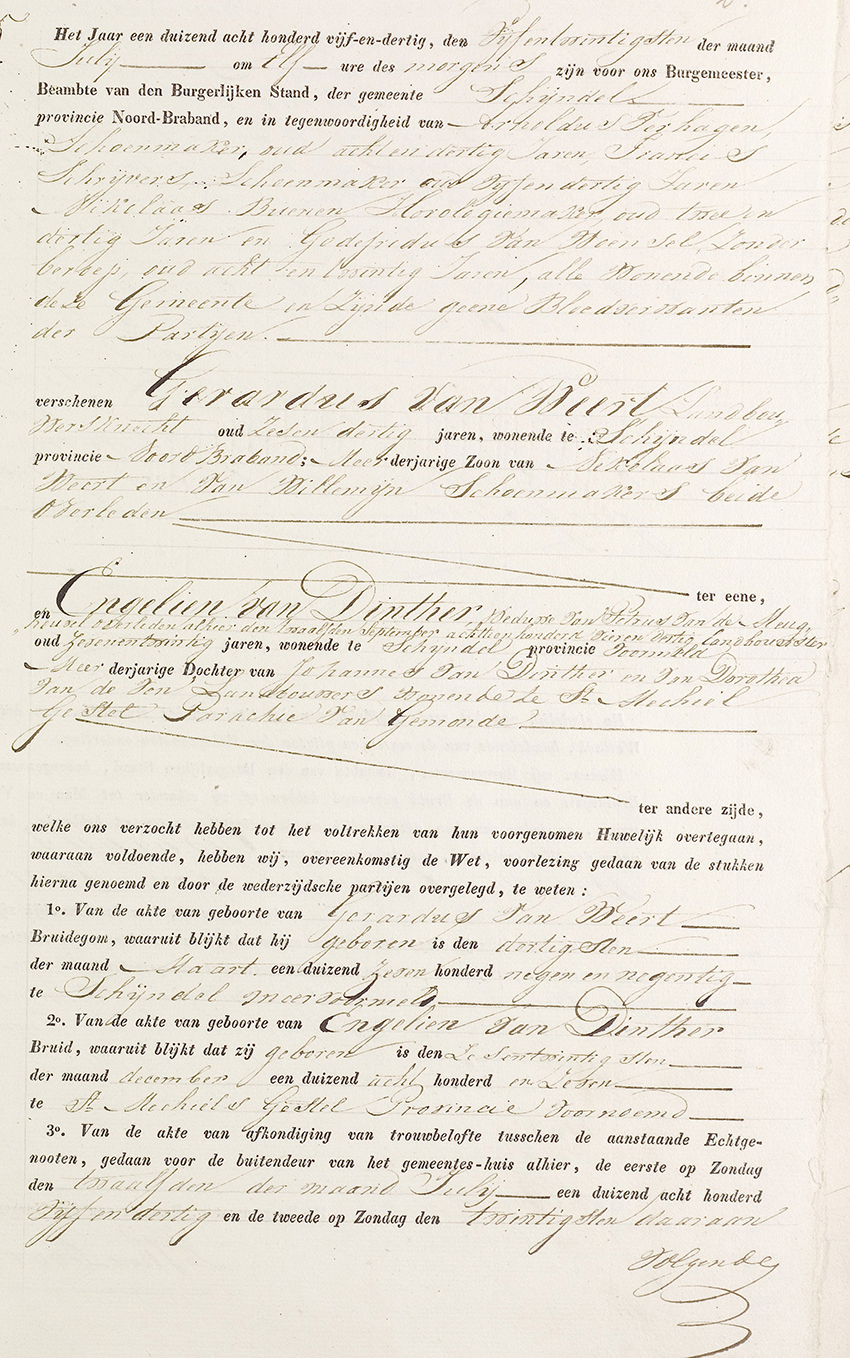 Het Jaar een duizend acht honderd vijf-en-dertig, den Vijfentwintigsten der maand
July om Elf ure des morgens zijn voor ons Burgemeester,
Beambte van den Burgerlijken Stand, der gemeente Schijndel
provincie Noord-Braband, en in tegenwoordigheid van Arnoldus Verhagen,
Schoenmaker, oud achtendertig Jaren, Francis
Schrijvers, Schoenmaker oud Vijfendertig Jaren
Nikolaas Buenen Horologiemaker oud twee en
dertig Jaren en Godefridus Van Woensel, Zonder
beroep, oud acht en twintig Jaren, alle Wonende binnen
deze Gemeente en Zijnde geene Bloedverwanten
der Partijen.
verschenen Gerardus Van Weert Landbou
wersknecht oud Zesendertig jaren, wonende te Schijndel
provincie Noord Braband; Meerderjarige Zoon van Nikolaas Van
Weert en Van Willemijn Schoenmakers beide
Overleden
ter eene,
en Engelien van Dinther, Weduwe Van Petrus Van de Meug,
heuvel overleden alhier den twaalfden September achttienhonderd vierendertig landbouwster
oud Zevenentwintig jaren, wonende te Schijndel provincie Voormeld
Meerderjarige Dochter van Johannes Van Dinther en Van Dorothea
Van de Ven Landbouwers Wonende te St. Mechiel
Gestel Parochie Van Gemonde
ter andere zijde,
welke ons verzocht hebben tot het voltrekken van hun voorgenomen Huwelijk overtegaan,
waaraan voldoende, hebben wij, overeenkomstig de Wet, voorlezing gedaan van de stukken
hierna genoemd en door de wederzijdsche partijen overgelegd, te weten:
1º. Van de akte van geboorte van Gerardus Van Weert
Bruidegom, waaruit blijkt dat hij geboren is den dertigsten
der maand Maart een duizend Zeven honderd negen en negentig
te Schijndel meervormeld
2º. Van de akte van geboorte van Engelien Van Dinther
Bruid, waaruit blijkt dat zij geboren is den Zesentwintigsten
der maand december een duizend acht honderd en Zeven
te St. Mechiels Gestel Provincie Voornoemd
3º. Van de akte van afkondiging van trouwbelofte tusschen de aanstaande Echtge-
nooten, gedaan voor de buitendeur van het gemeentes-huis alhier, de eerste op Zondag
den twaalfden der maand July een duizend acht honderd
Vijf en dertig en de tweede op Zondag den twintigsten daaraan
Volgende